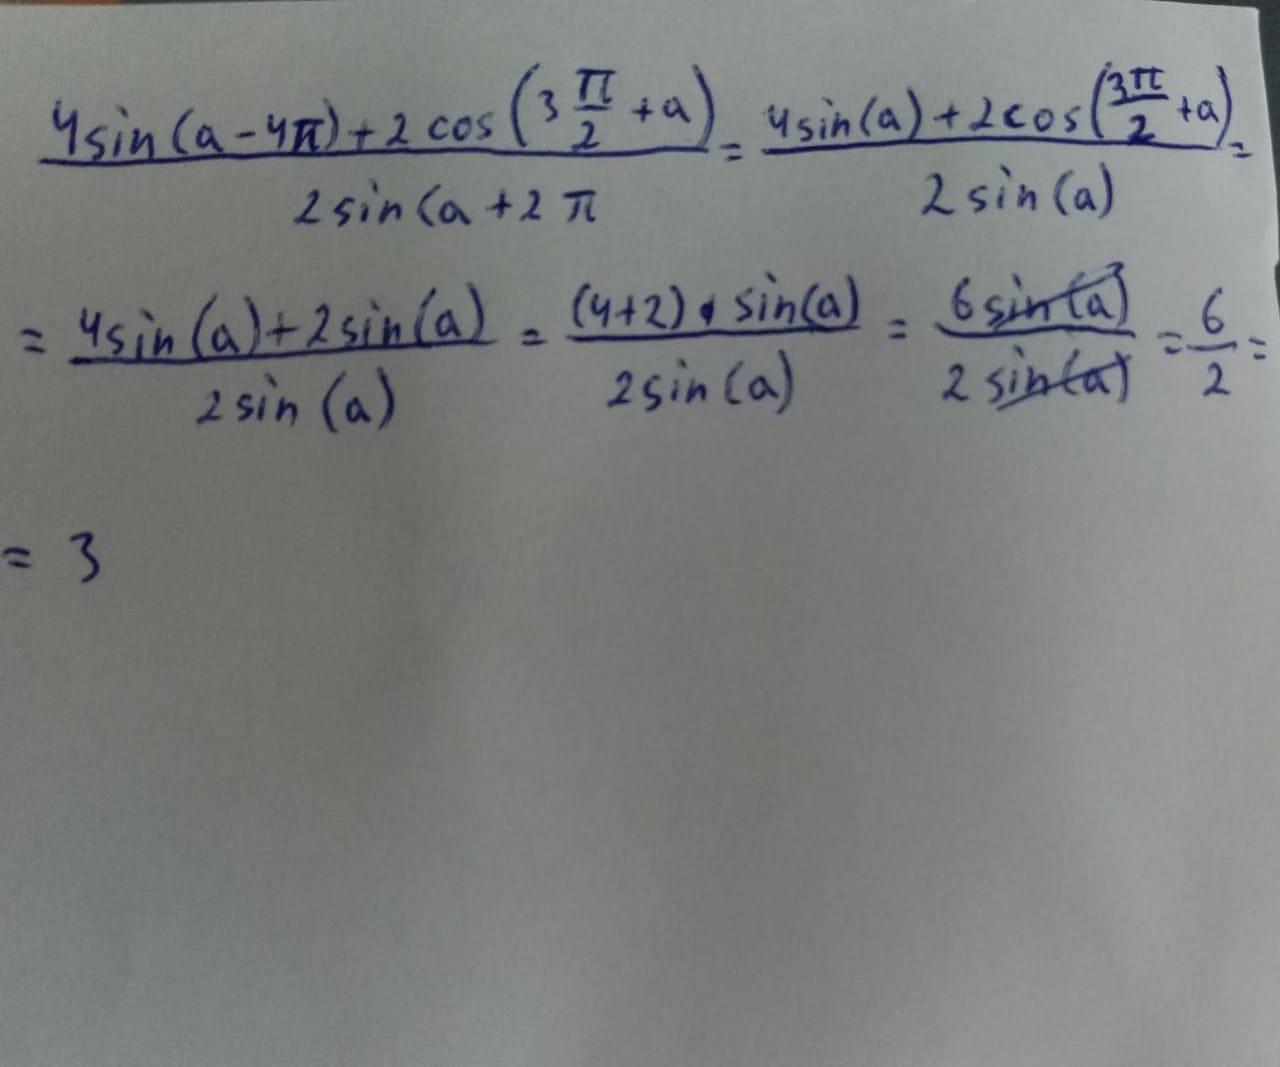 4sin(a-4π)+2cos(3π/2+a) / 2sin(a+2π = 4sin(a)+2cos(3π/2+a) / 2sin(a) =
= 4sin(a)+2sin(a) / 2sin(a) = (4+2)·sin(a) / 2sin(a) = 6sin(a) / 2sin(a) = 6/2 =
= 3